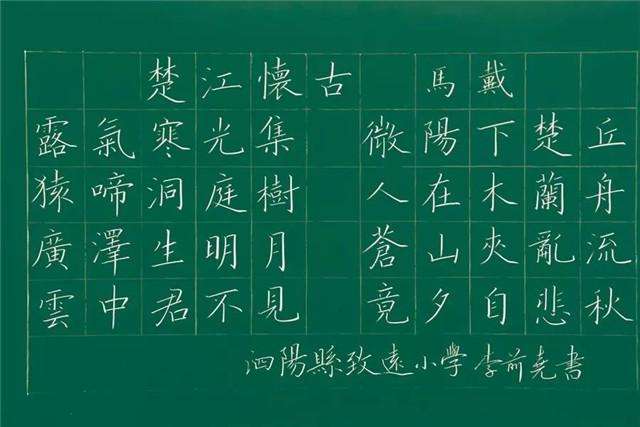 楚江懷古 馬戴
露氣寒光集 微陽下楚丘
猿啼洞庭樹 人在木蘭舟
廣澤生明月 蒼山夾亂流
雲中君不見 竟夕自悲秋
泗陽縣致遠小學 李前堯書